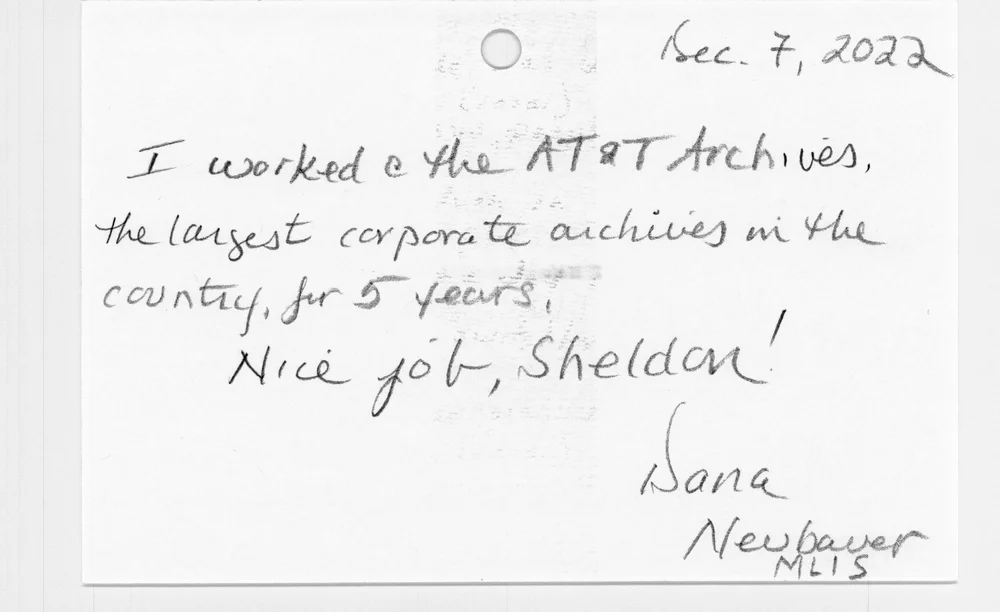 Dec. 7, 2022
I worked @ the AT&T Archives,
the largest corporate archives in the
country, for 5 years.
Nice job, Sheldon!
Dana
Neubauer
MLIS